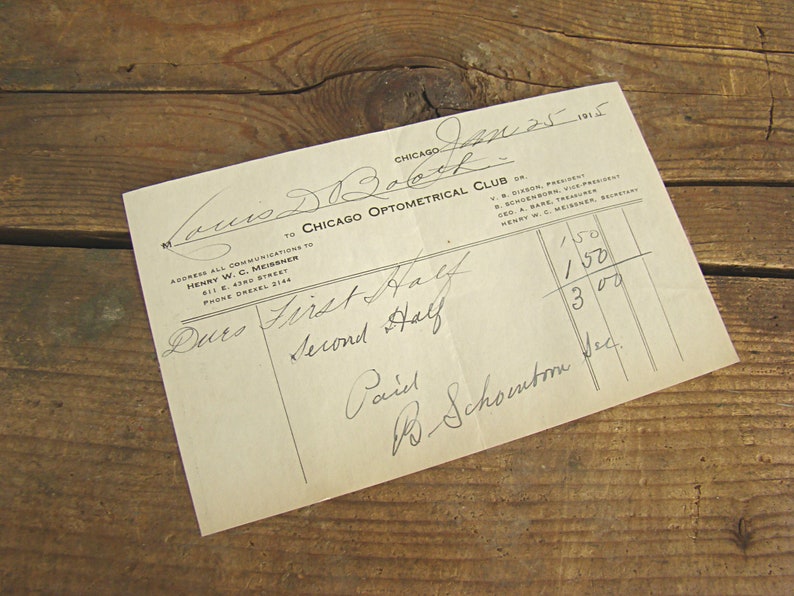 CHICAGO Jan 25 1915
M Louis D
TO CHICAGO OPTOMETRICAL CLUB DR.
V. B. DIXSON, PRESIDENT
B. SCHOENBORN, VICE-PRESIDENT
GEO. A. BARE, TREASURER
HENRY W. C. MEISSNER, SECRETARY
ADDRESS ALL COMMUNICATIONS TO
HENRY W. C. MEISSNER
611 E. 43RD STREET
PHONE DREXEL 2144
Dues First Half 1 50
Second Half 1 50
3 00
Paid
B Schoenborn Sec.